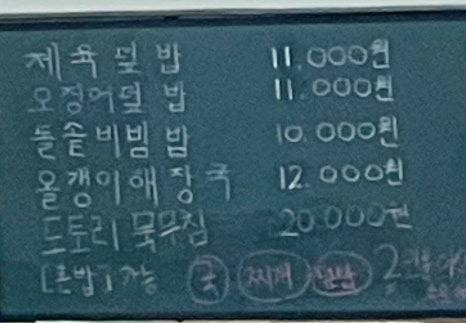 제육덮밥 11.000원
오징어덮밥 11.000원
돌솥비빔밥 10.000원
올갱이해장국 12.000원
도토리묵무침 20.000원
[혼밥]가능 국 찌개 덮밥 2인